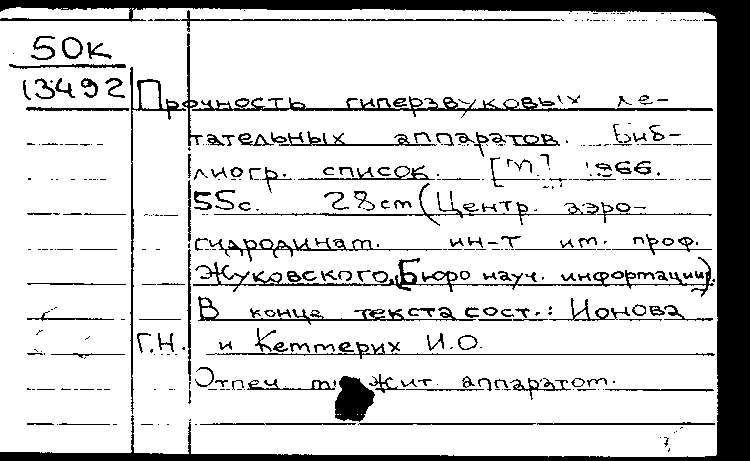 50к
13492
Прочность гиперзвуковых ле-
тательных аппаратов. Биб-
лиогр. список. [М.], 1966.
55с. 28cm (Центр. аэро-
гидродинам. ин-т им. проф.
Жуковского. Бюро науч. информации).
В конце текста сост.: Ионова
Г.Н. и Кеммерих И.О.
Отпеч. аппаратом.